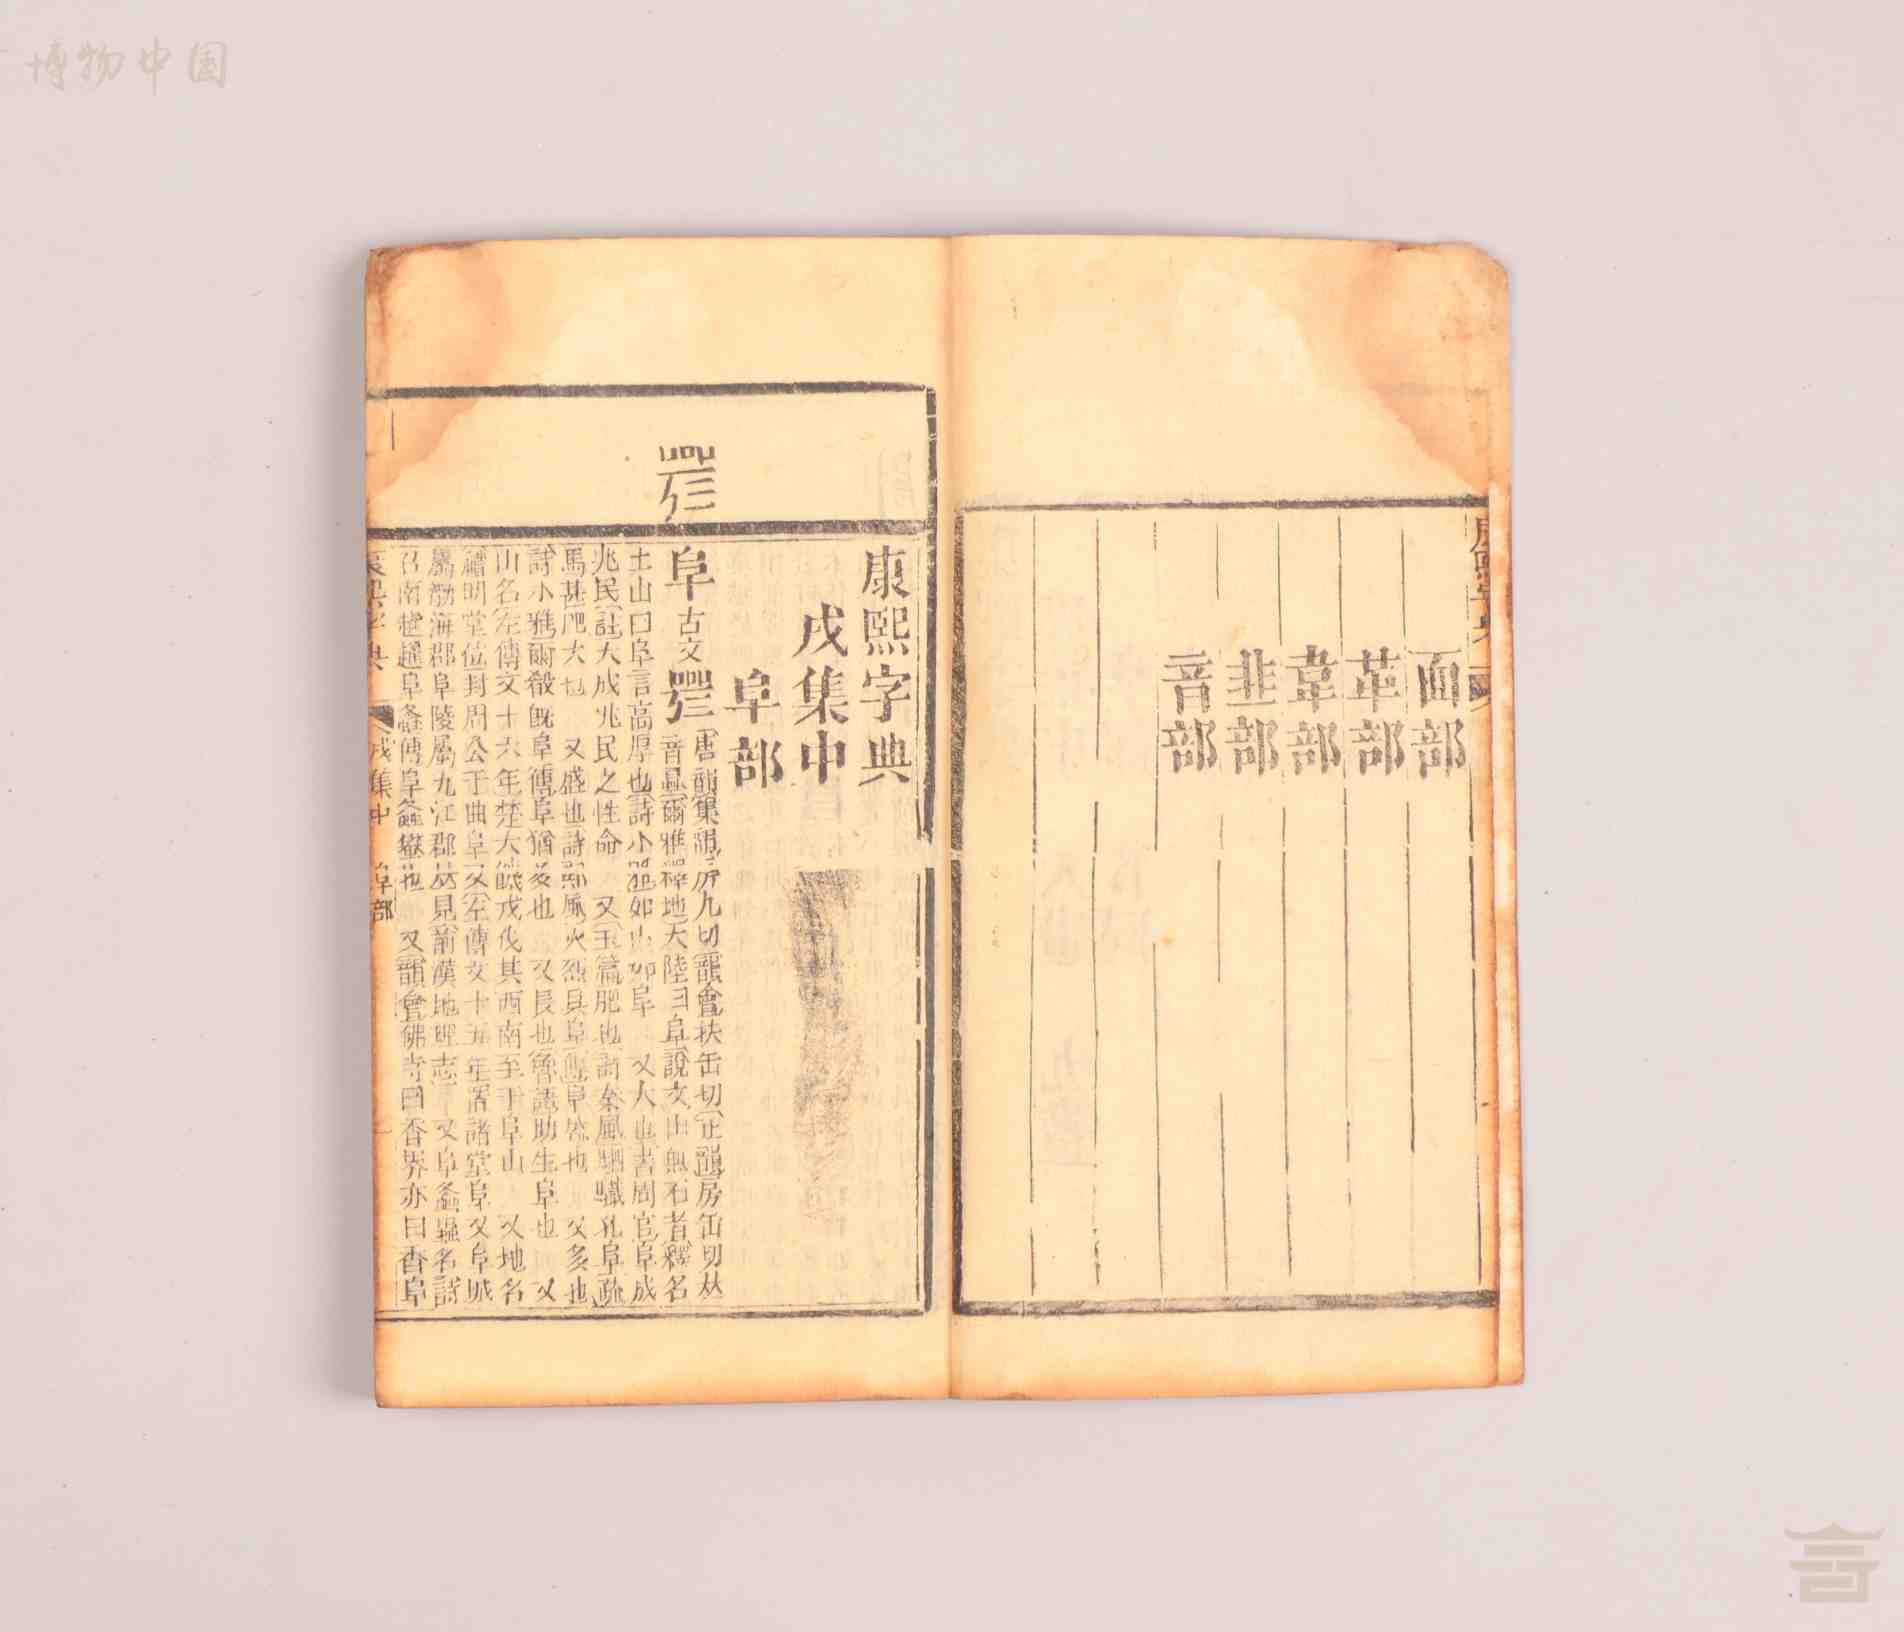 博物中国
面部
革部
韋部
韭部
音部
康熙字典
戌集中
阜部
阜古文𨸏唐韻集韻房九切韻會扶缶切正韻房缶切𠀤
音𨸏爾雅釋地大陸曰阜說文山無石者釋名
土山曰阜言高厚也詩小雅如山如阜 又大也書周官阜成
兆民註大成兆民之性命 又玉篇肥也詩秦風駟驖孔阜疏
馬甚肥大也 又盛也詩鄭風火烈具阜傳阜盛也 又多也
詩小雅爾殽旣阜傳阜猶多也 又長也魯語助生阜也 又
山名左傳文十六年楚大饑戎伐其西南至于阜山 又地名
禮明堂位封周公于曲阜 又左傳文十五年 諸堂阜又阜城
屬渤海郡阜陵屬九江郡 見前漢地理志 又阜螽蟲名詩
召南趯趯阜螽傳阜螽蠜也 又韻會佛寺曰香界亦曰香阜
戌集中
阜部